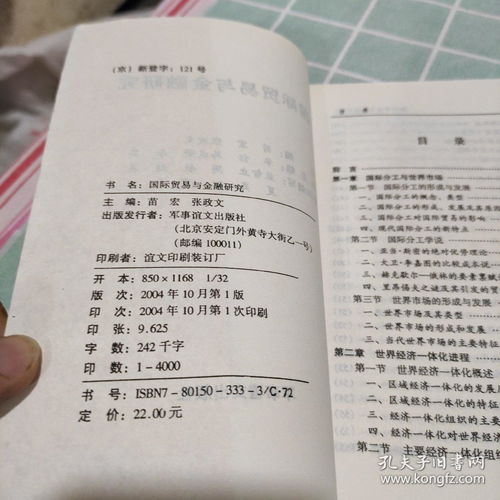 （京）新登字：121号
书 名：国际贸易与金融研究
主 编：苗 宏 张政文
出版发行者：军事谊文出版社
（北京安定门外黄寺大街乙一号）
（邮编100011）
印刷者：谊文印刷装订厂
开 本：850×1168 1/32
版 次：2004年10月第1版
印 次：2004年10月第1次印刷
印 张：9.625
字 数：242千字
印 数：1-4000
书 号：ISBN7-80150-333-3/C·72
定 价：22.00元
目 录
前 言
第一章 国际分工与世界市场
第一节 国际分工的形成与发展
一、国际分工的概念、类型
二、国际分工的形成、发展及其
三、国际分工对国际贸易的影响
四、现代国际分工的新特点
第二节 国际分工学说
一、亚当·斯密的绝对优势理论
二、大卫·李嘉图的比较成本说
三、赫克歇尔—俄林的要素禀赋
四、里昂惕夫之谜及其引发的贸
第三节 世界市场的形成与发展
一、世界市场及其类型
二、世界市场的形成和发展
三、当代世界市场的主要特征
第二章 世界经济一体化进程
第一节 世界经济一体化概述
一、区域经济一体化的发展
二、区域经济一体化的特征
三、经济一体化组织的主要
四、经济一体化对世界经济
第二节 主要经济一体化组织
孔夫子旧书网
www.kongfz.com